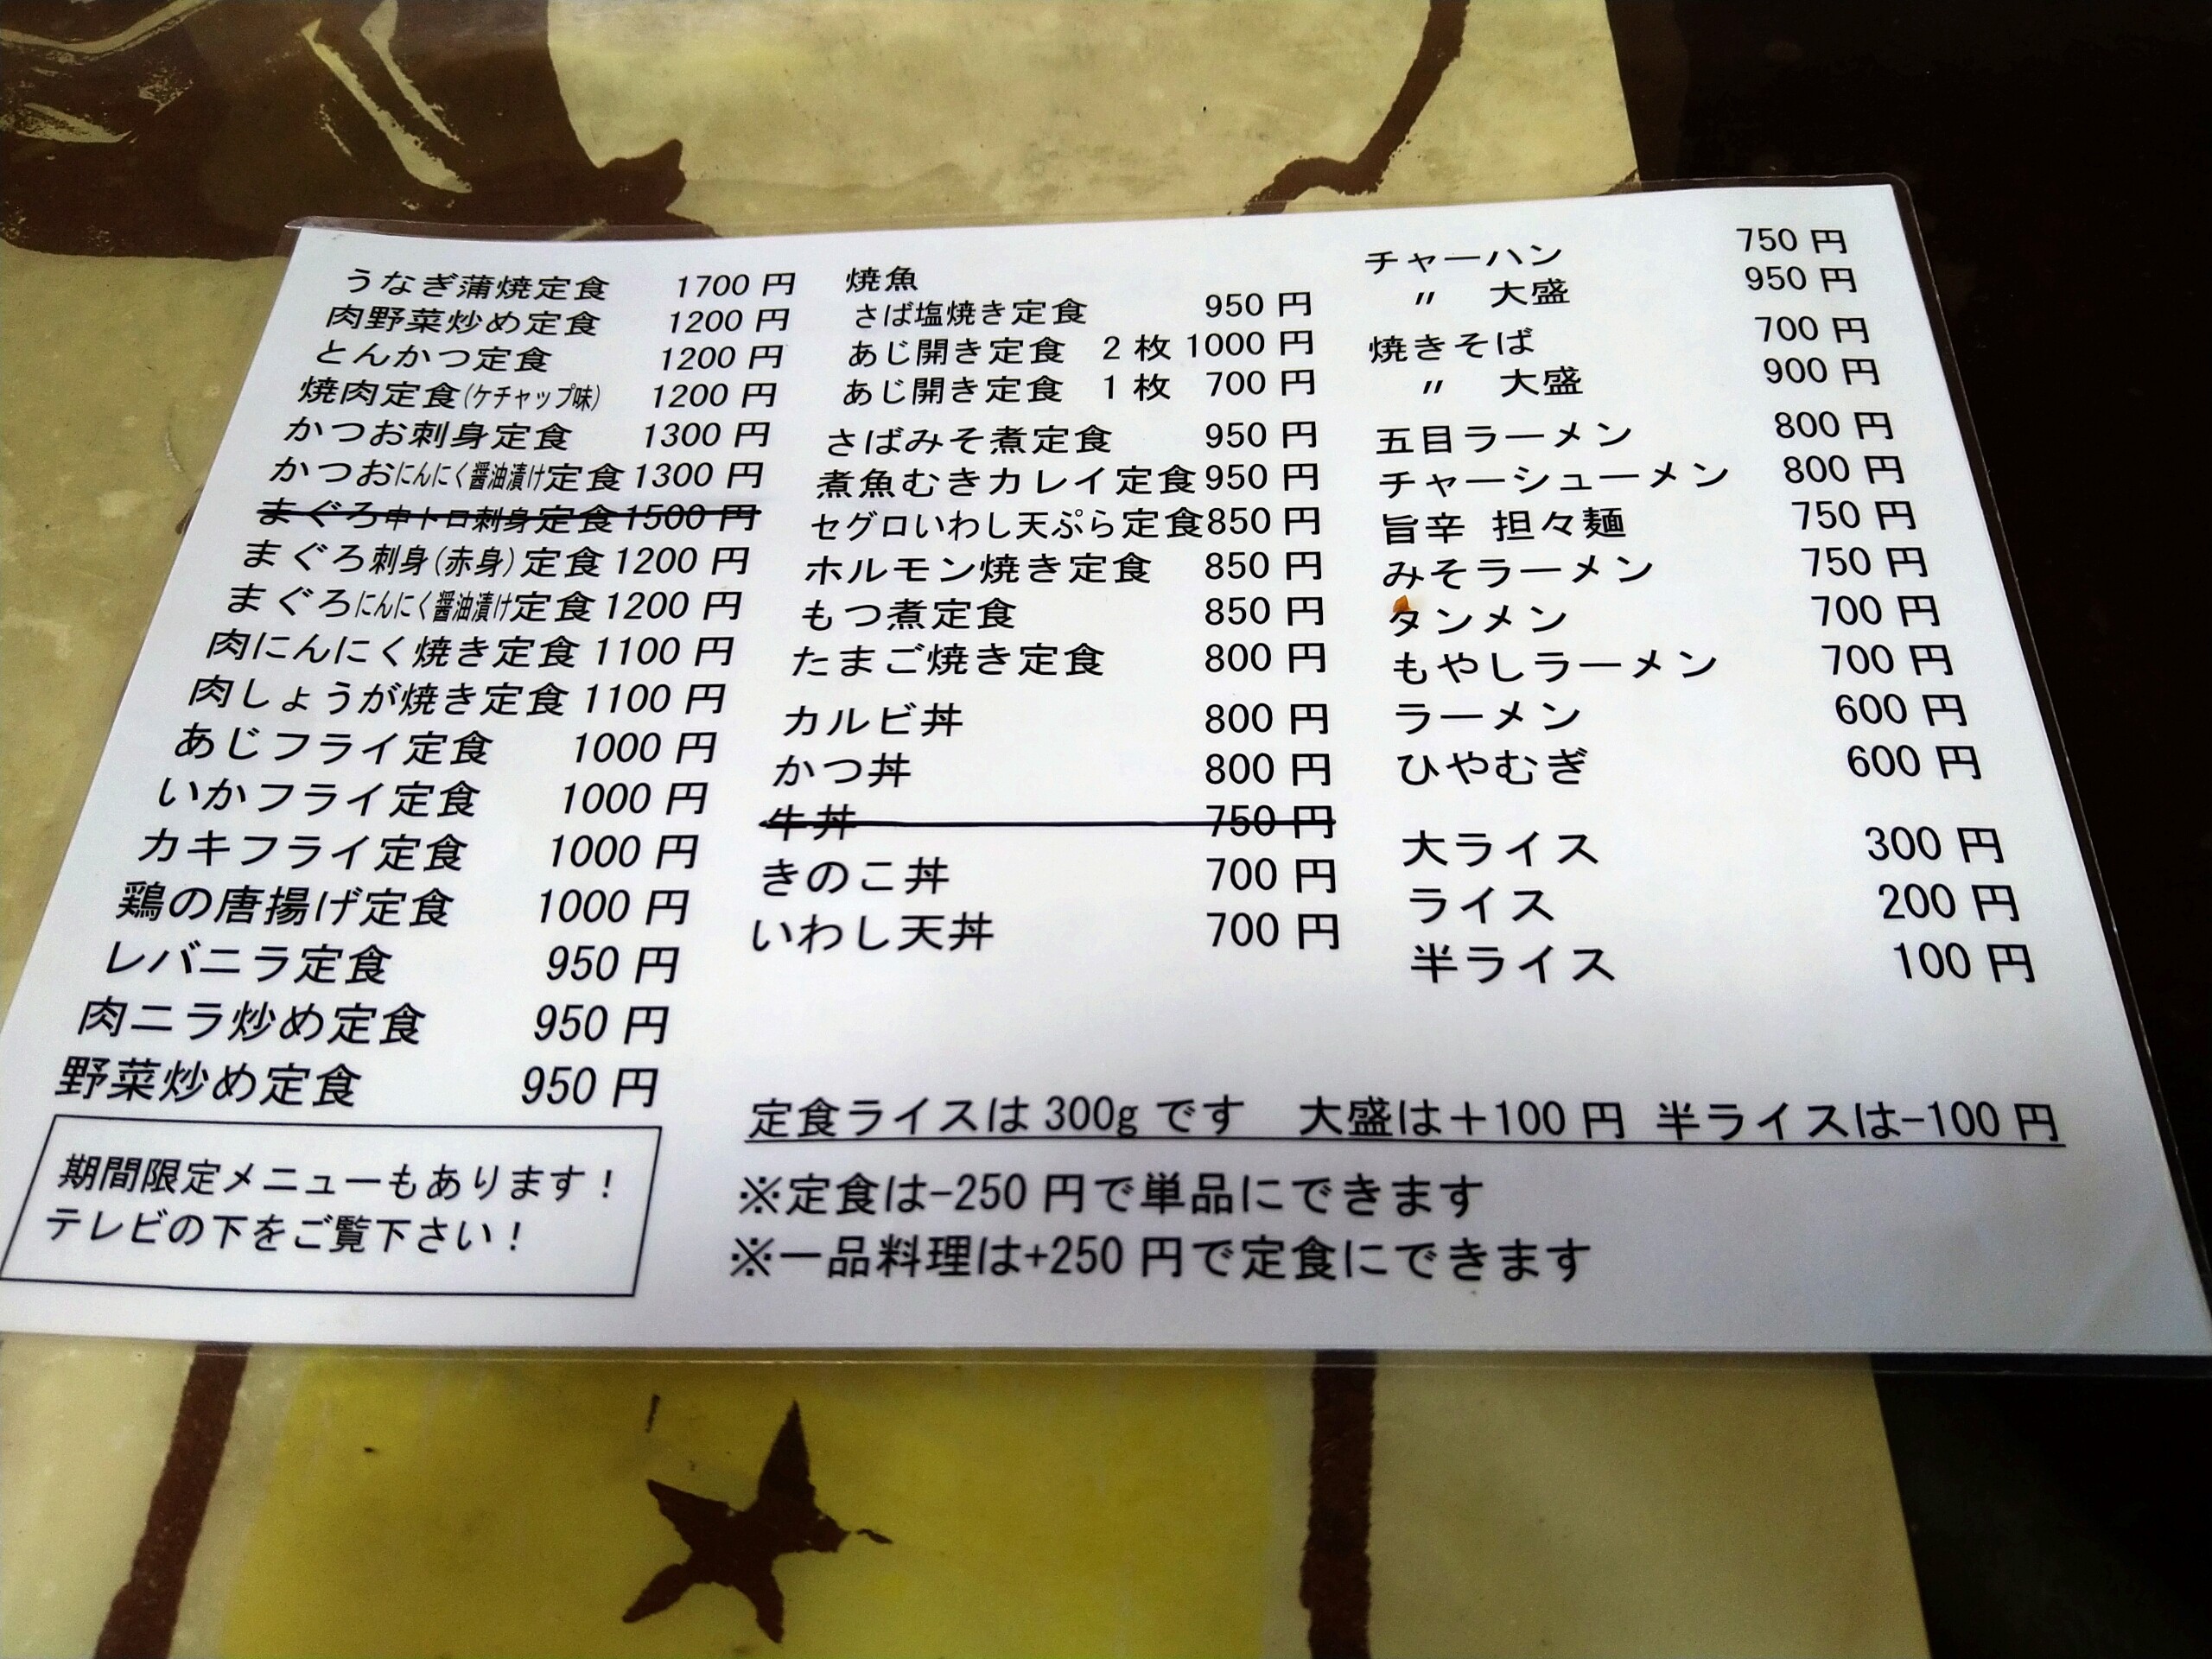 うなぎ蒲焼定食 1700 円
肉野菜炒め定食 1200 円
とんかつ定食 1200 円
焼肉定食(ケチャップ味) 1200 円
かつお刺身定食 1300 円
かつおにんにく醤油漬け定食 1300 円
まぐろ中トロ刺身定食 1500 円
まぐろ刺身(赤身)定食 1200 円
まぐろにんにく醤油漬け定食 1200 円
肉にんにく焼き定食 1100 円
肉しょうが焼き定食 1100 円
あじフライ定食 1000 円
いかフライ定食 1000 円
カキフライ定食 1000 円
鶏の唐揚げ定食 1000 円
レバニラ定食 950 円
肉ニラ炒め定食 950 円
野菜炒め定食 950 円
期間限定メニューもあります！
テレビの下をご覧下さい！
焼魚
さば塩焼き定食 950 円
あじ開き定食 2 枚 1000 円
あじ開き定食 1 枚 700 円
さばみそ煮定食 950 円
煮魚むきカレイ定食 950 円
セグロいわし天ぷら定食 850 円
ホルモン焼き定食 850 円
もつ煮定食 850 円
たまご焼き定食 800 円
カルビ丼 800 円
かつ丼 800 円
牛丼 750 円
きのこ丼 700 円
いわし天丼 700 円
チャーハン 750 円
〃 大盛 950 円
焼きそば 700 円
〃 大盛 900 円
五目ラーメン 800 円
チャーシューメン 800 円
旨辛 担々麺 750 円
みそラーメン 750 円
タンメン 700 円
もやしラーメン 700 円
ラーメン 600 円
ひやむぎ 600 円
大ライス 300 円
ライス 200 円
半ライス 100 円
定食ライスは 300g です 大盛は＋100 円 半ライスは-100 円
※定食は-250 円で単品にできます
※一品料理は+250 円で定食にできます